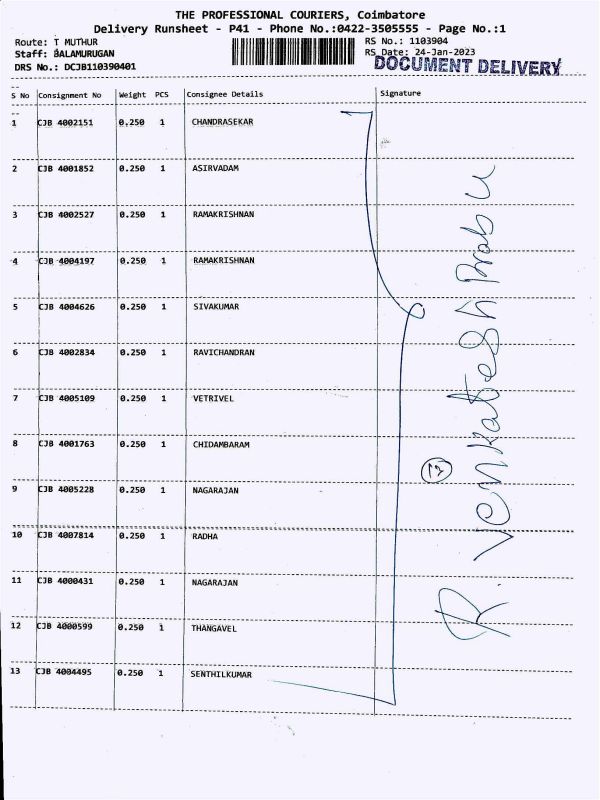 THE PROFESSIONAL COURIERS, Coimbatore
Delivery Runsheet - P41 - Phone No.:0422-3505555 - Page No.:1
Route: T MUTHUR
RS No.: 1103904
Staff: BALAMURUGAN
RS Date: 24-Jan-2023
DRS No.: DCJB110390401
DOCUMENT DELIVERY
S No Consignment No Weight PCS Consignee Details Signature
1 CJB 4002151 0.250 1 CHANDRASEKAR
2 CJB 4001852 0.250 1 ASIRVADAM
3 CJB 4002527 0.250 1 RAMAKRISHNAN
4 CJB 4004197 0.250 1 RAMAKRISHNAN
5 CJB 4004626 0.250 1 SIVAKUMAR
6 CJB 4002834 0.250 1 RAVICHANDRAN
7 CJB 4005109 0.250 1 VETRIVEL
8 CJB 4001763 0.250 1 CHIDAMBARAM
9 CJB 4005228 0.250 1 NAGARAJAN
10 CJB 4007814 0.250 1 RADHA
11 CJB 4000431 0.250 1 NAGARAJAN
12 CJB 4000599 0.250 1 THANGAVEL
13 CJB 4004495 0.250 1 SENTHILKUMAR
R. Venkatesh Prabu